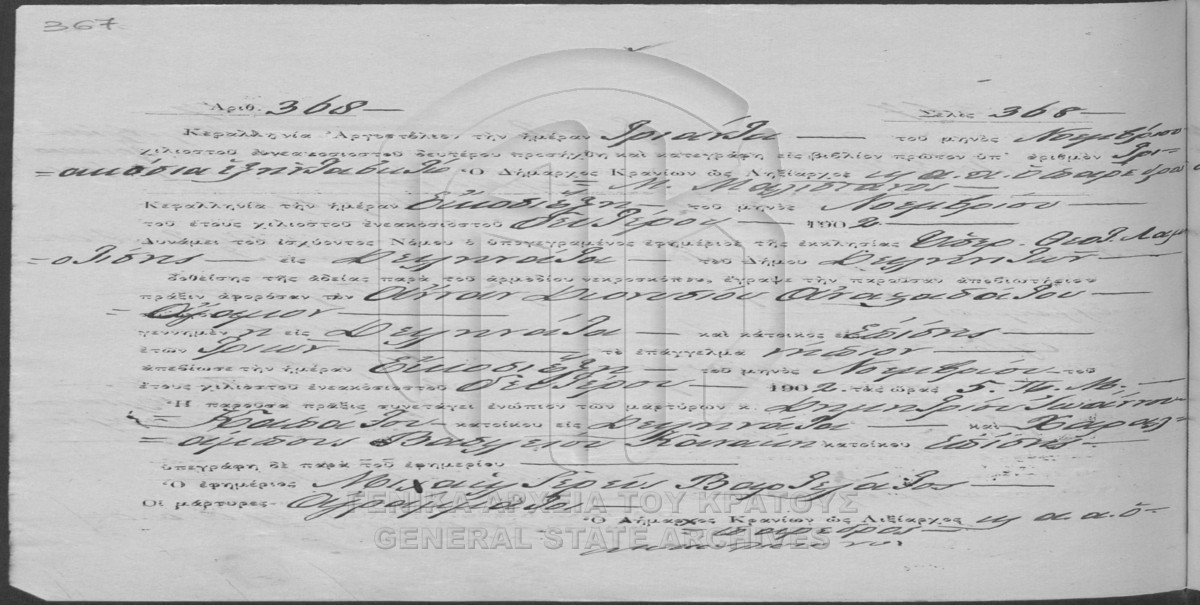 367
Ἀριθ. 368 — Σελὶς 368 —
Κεφαλληνία Ἀργοστόλιον τὴν ἡμέραν Τριάντα — τοῦ μηνὸς Νοεμβρίου
χιλιοστοῦ ἐννεακοσιοστοῦ δευτέρου προσήχθη καὶ κατεγράφη εἰς βιβλίον πρῶτον ὑπ' ἀριθμὸν Τρι-
= ακόσια ἑξήντα οκτώ Ὁ Δήμαρχος Κρανίων ὡς Ληξίαρχος κ α. α. ὁ πάρεδρος
Κεφαλληνία τὴν ἡμέραν εἰκοσιέξη — τοῦ μηνὸς Νοεμβρίου —
τοῦ ἔτους χιλιοστοῦ ἐνεακοσιοστοῦ δευτέρου — 1902 —
Δυνάμει τοῦ ἰσχύοντος Νόμου ὁ ὑπογεγραμένος ἐφημέριος τῆς ἐκκλησίας Ὑπερ. Θεοτ.
εἰς Δειλινάτα — τοῦ Δήμου
δοθείσης τῆς ἀδείας παρὰ τοῦ ἁρμοδίου νεκροσκόπου, ἔγραψε τὴν παροῦσαν ἀποβιωτήριον
πρᾶξιν ἀφορῶσαν τὸν Διονυσίου
γεννημέν η εἰς Δειλινάτα — καὶ κάτοικος εἰς —
ἐτῶν Τριῶν — τὸ ἐπάγγελμα νήπιον —
ἀπεβίωσε τὴν ἡμέραν Εἰκοσιέξη — τοῦ μηνὸς Νοεμβρίου τοῦ
ἔτους χιλιοστοῦ ἐνεακοσιοστοῦ δευτέρου — 1902 τὰς ὥρας 5. π. Μ. —
Ἡ παροῦσα πρᾶξις συνετάγει ἐνώπιον τῶν μαρτύρων κ. Δημητρίου Ἰωάννου
κατοίκου εἰς Δειλινάτα — καὶ Χαραλ=
= άμπους Βασιλείου κατοίκου
ὑπεγράφη δὲ παρὰ τοῦ ἐφημερίου —
Ὁ ἐφημέριος Μιχαὴλ Ἱερεὺς Βαρτελάτος —
Οἱ μάρτυρες Ἀγράμματοι
Ὁ Δήμαρχος Κρανίων ὡς Ληξίαρχος κ α. α. ὁ-
πάρεδρος —
ΓΕΝΙΚΑ ΑΡΧΕΙΑ ΤΟΥ ΚΡΑΤΟΥΣ
GENERAL STATE ARCHIVES